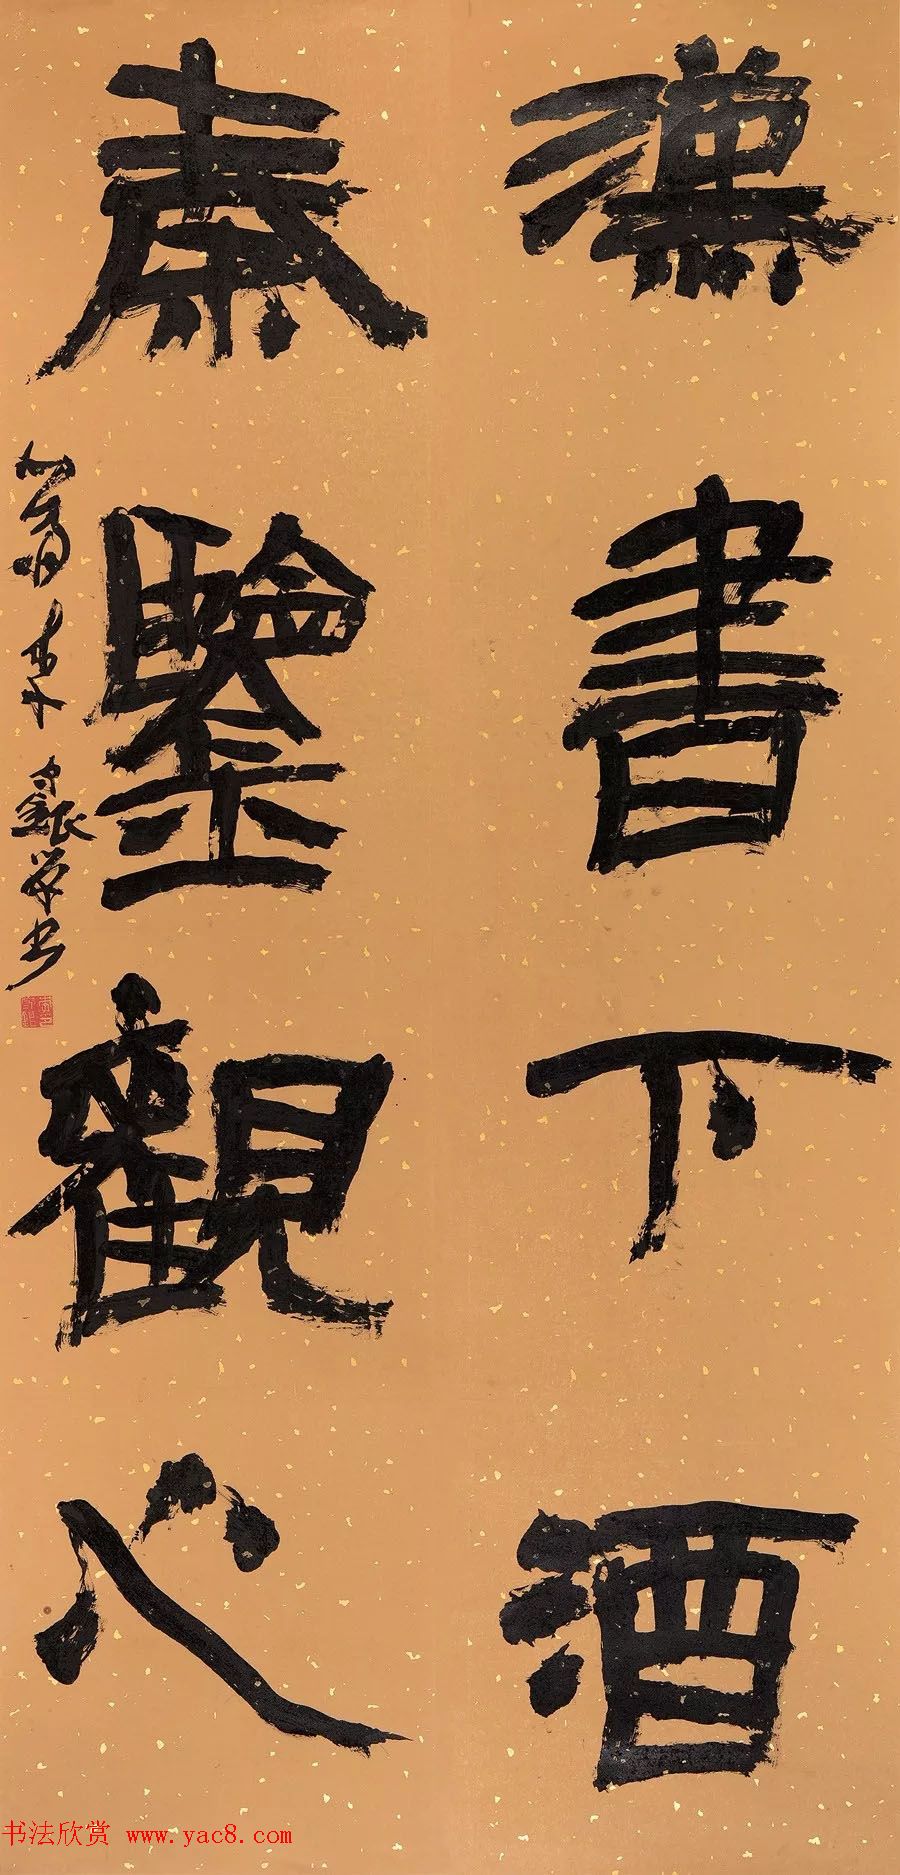 漢書下酒
秦鑒觀心
书法欣赏 www.yac8.com